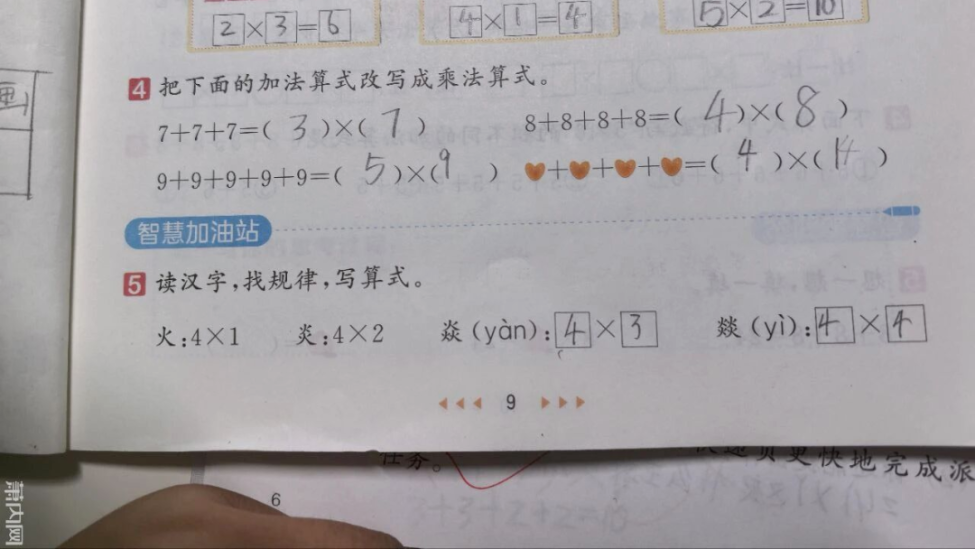 2×3=6 4×1=4 5×2=10
画
4 把下面的加法算式改写成乘法算式。
7+7+7=( 3 )×( 7 ) 8+8+8+8=( 4 )×( 8 )
9+9+9+9+9=( 5 )×( 9 ) ❤+❤+❤+❤=( 4 )×( 14 )
智慧加油站
5 读汉字,找规律,写算式。
火:4×1 炎:4×2 焱(yàn):4×3 燚(yì):4×4
9
任务。
更快地完成派
6
3+3+2+2=10